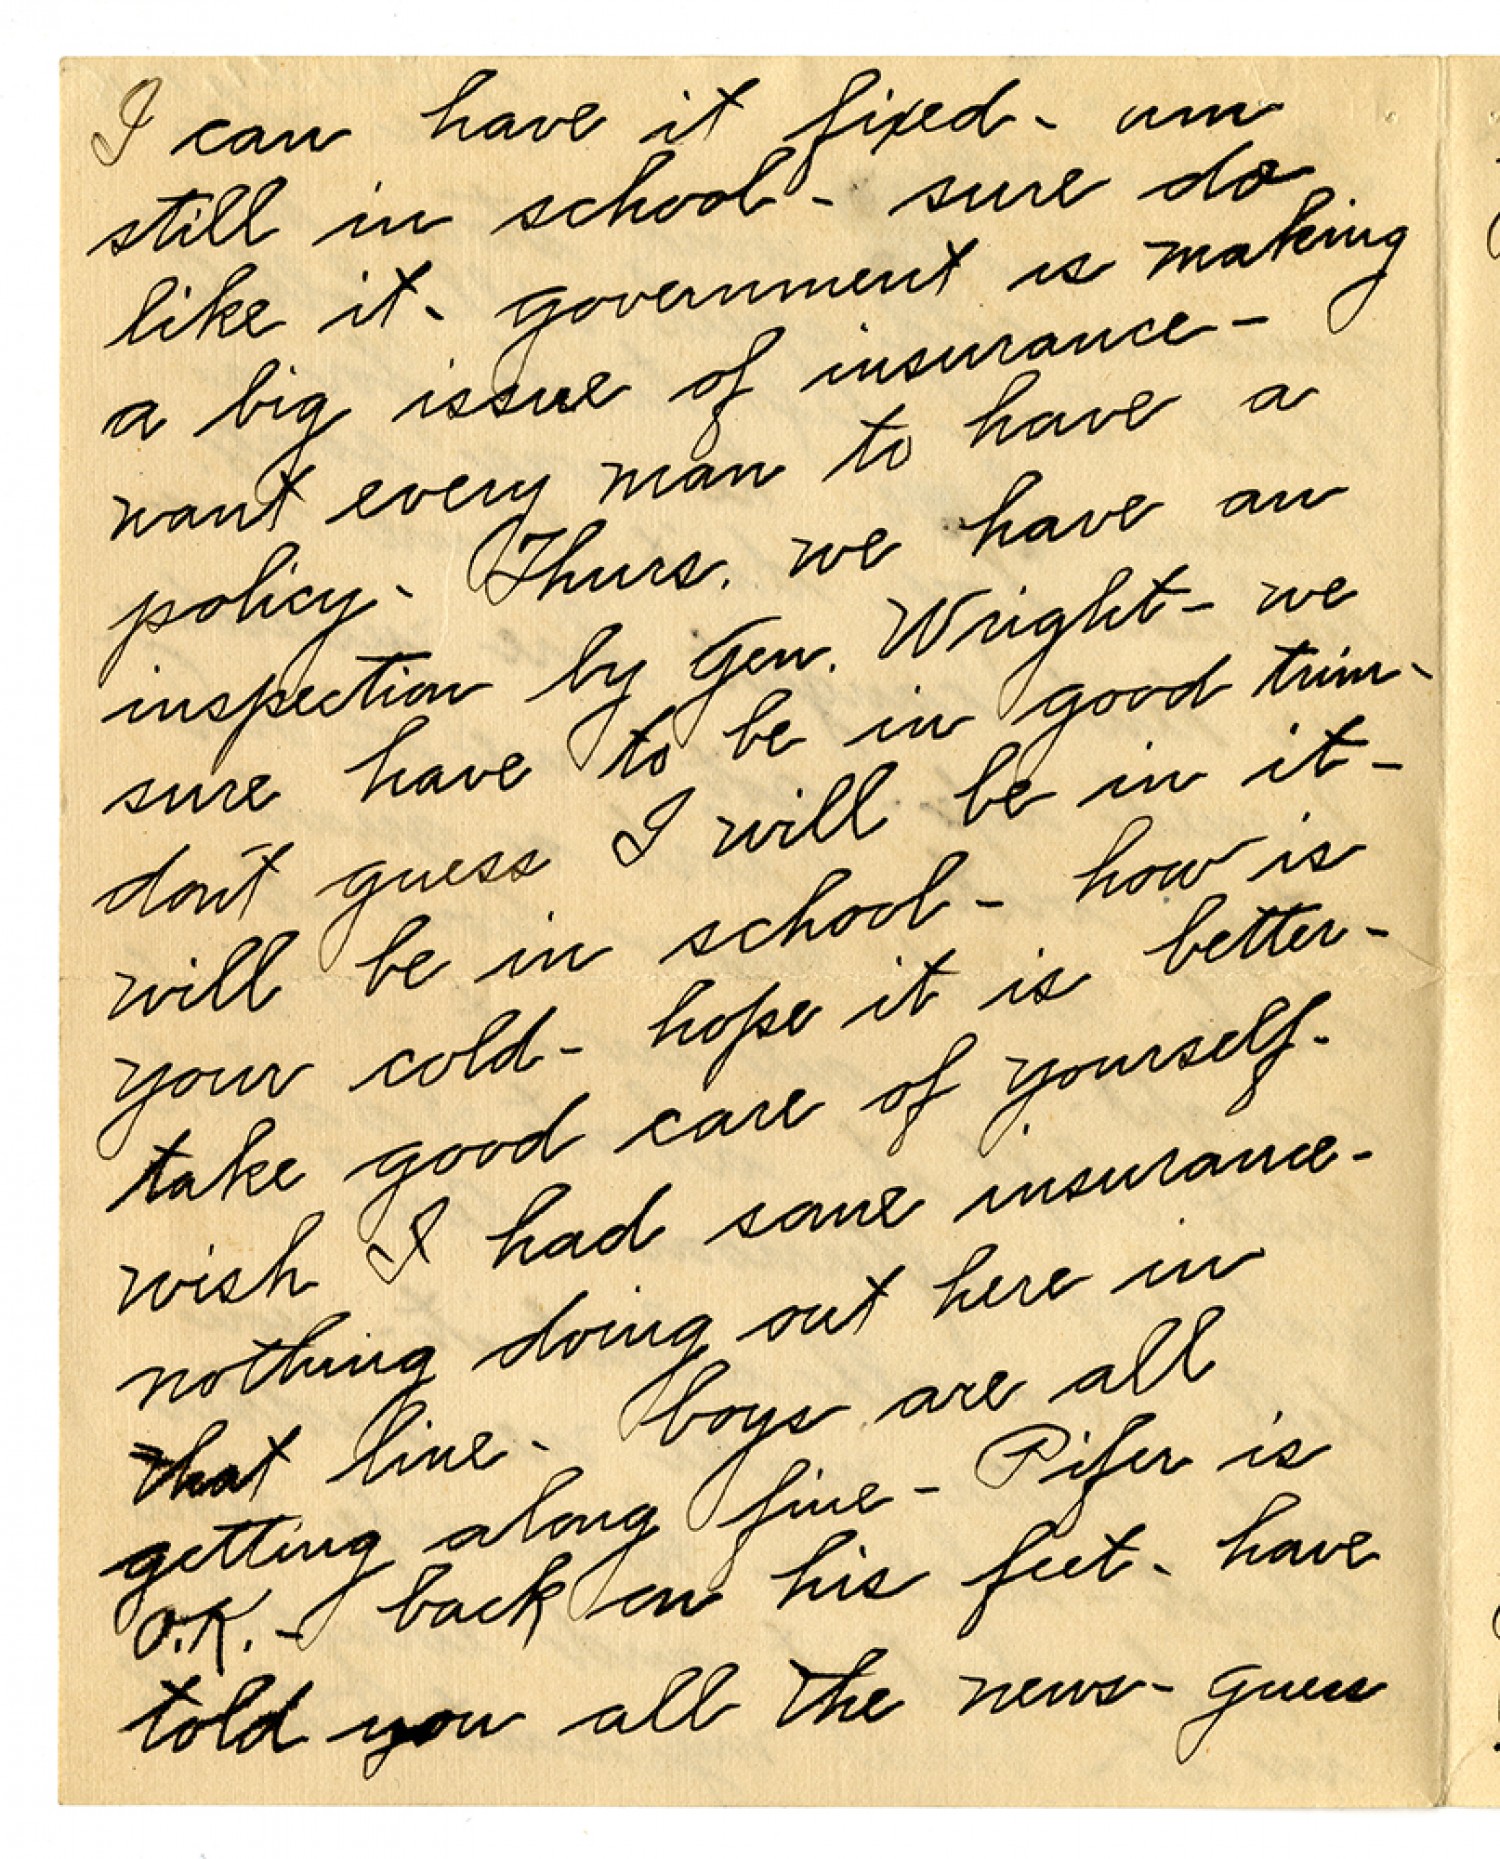 I can have it fixed - am
still in school - sure do
like it - government is making
a big issue of insurance -
want every man to have a
policy - Thurs. we have an
inspection by Gen. Wright - we
sure have to be in good trim -
don't guess I will be in it -
will be in school - how is
your cold - hope it is better -
take good care of yourself -
wish I had some insurance -
nothing doing out here in
that line - boys are all
getting along fine - Pifer is
O.K. - back on his feet - have
told you all the news - guess